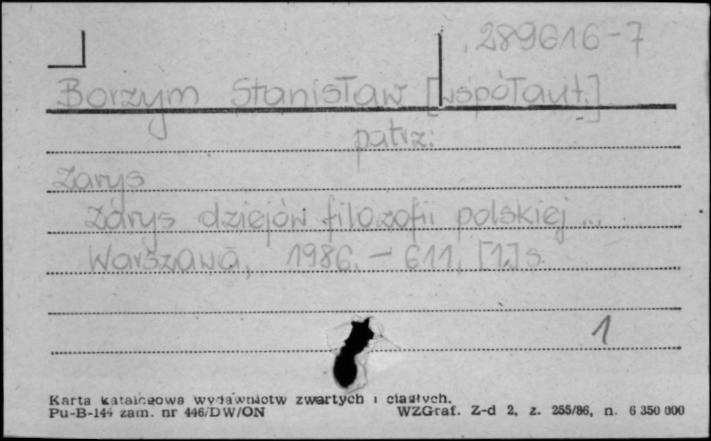 289616-7
Borzym Stanisław [współaut.]
patrz:
Zarys
Zarys dziejów filozofii polskiej ...
Warszawa, 1986. - 611, [1] s.
1
Karta katalogowa wydawnictw zwartych i ciągłych.
Pu-B-144 zam. nr 446/DW/ON WZGraf. Z-d 2, z. 255/86, n. 6 350 000